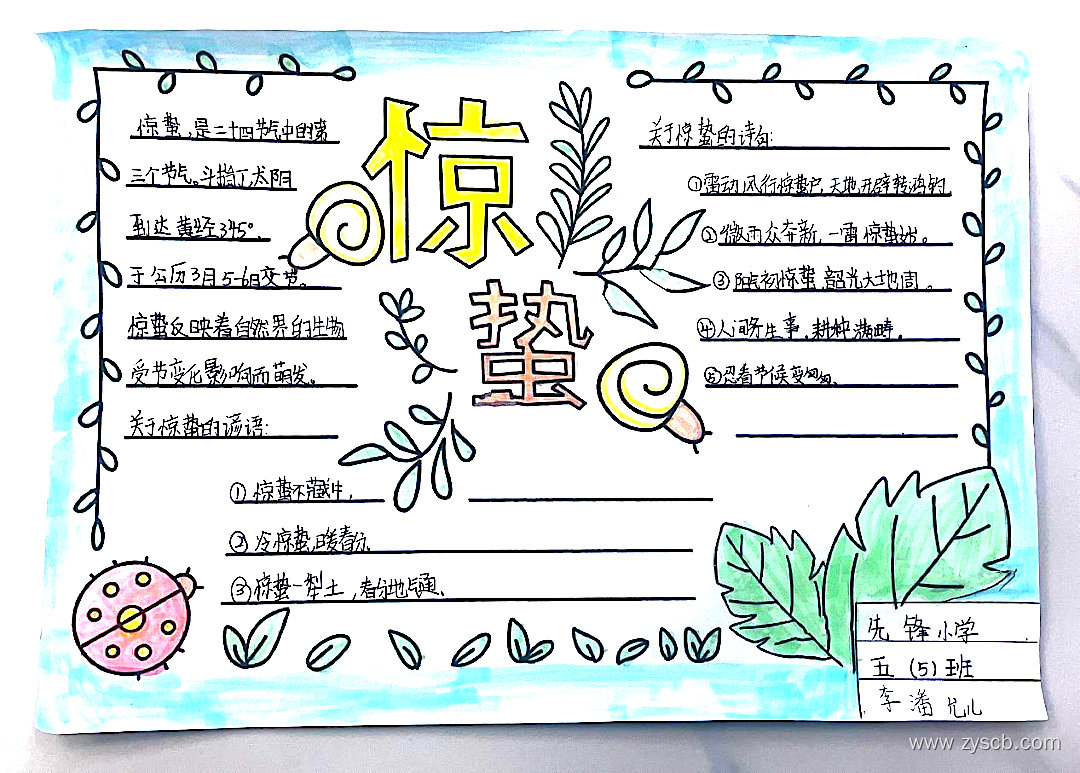 惊蛰
惊蛰,是二十四节气中的第
三个节气。斗指丁,太阳
到达黄经345°。
于公历3月5-6日交节。
惊蛰反映着自然界的生物
受节变化影响而萌发。
关于惊蛰的谚语:
①惊蛰不藏牛,
②冷惊蛰,暖春分
③惊蛰一犁土,春分地气通、
关于惊蛰的诗句:
①雷动风行惊蛰户,天地开辟转鸿钧
②微雨众卉新,一雷惊蛰始。
③阳气初惊蛰,韶光大地周。
④人间务生事,耕种满畴。
⑤忍看节候变匆匆、
先锋小学
五(5)班
李潘
www.zyscb.com